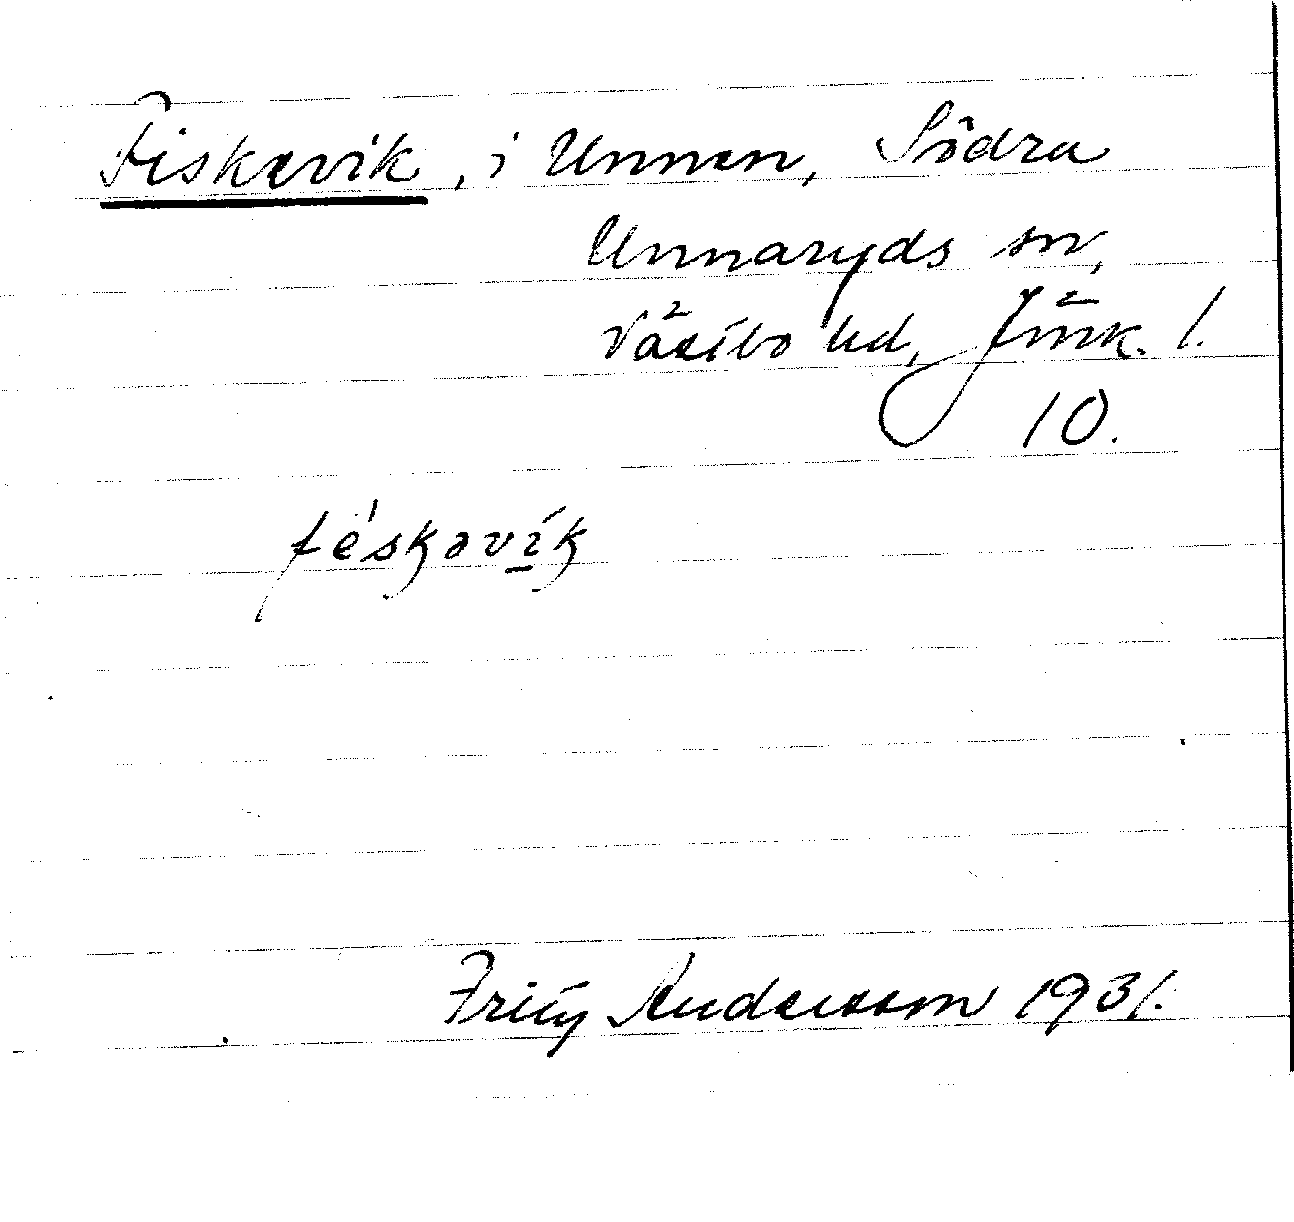 Fiskevik, i Unnen, Södra
Unnaryds sn,
Västbo hd, Jönk. l.
10.
féskəvìk
Frity Andersson 1931.